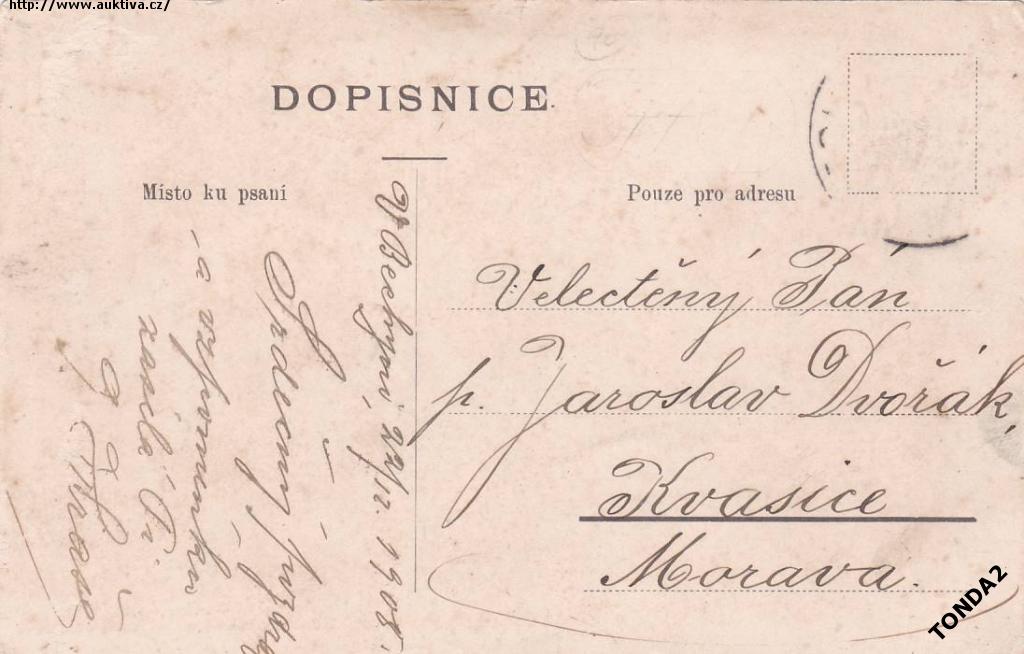 http://www.auktiva.cz/
DOPISNICE.
Místo ku psaní
Pouze pro adresu
V Bechyni, 22/12. 1908.
Srdečný pozdrav
a vzpomínku
zasílá Ti
Velectěný Pán
p. Jaroslav Dvořák,
Kvasice
Morava.
TONDA2